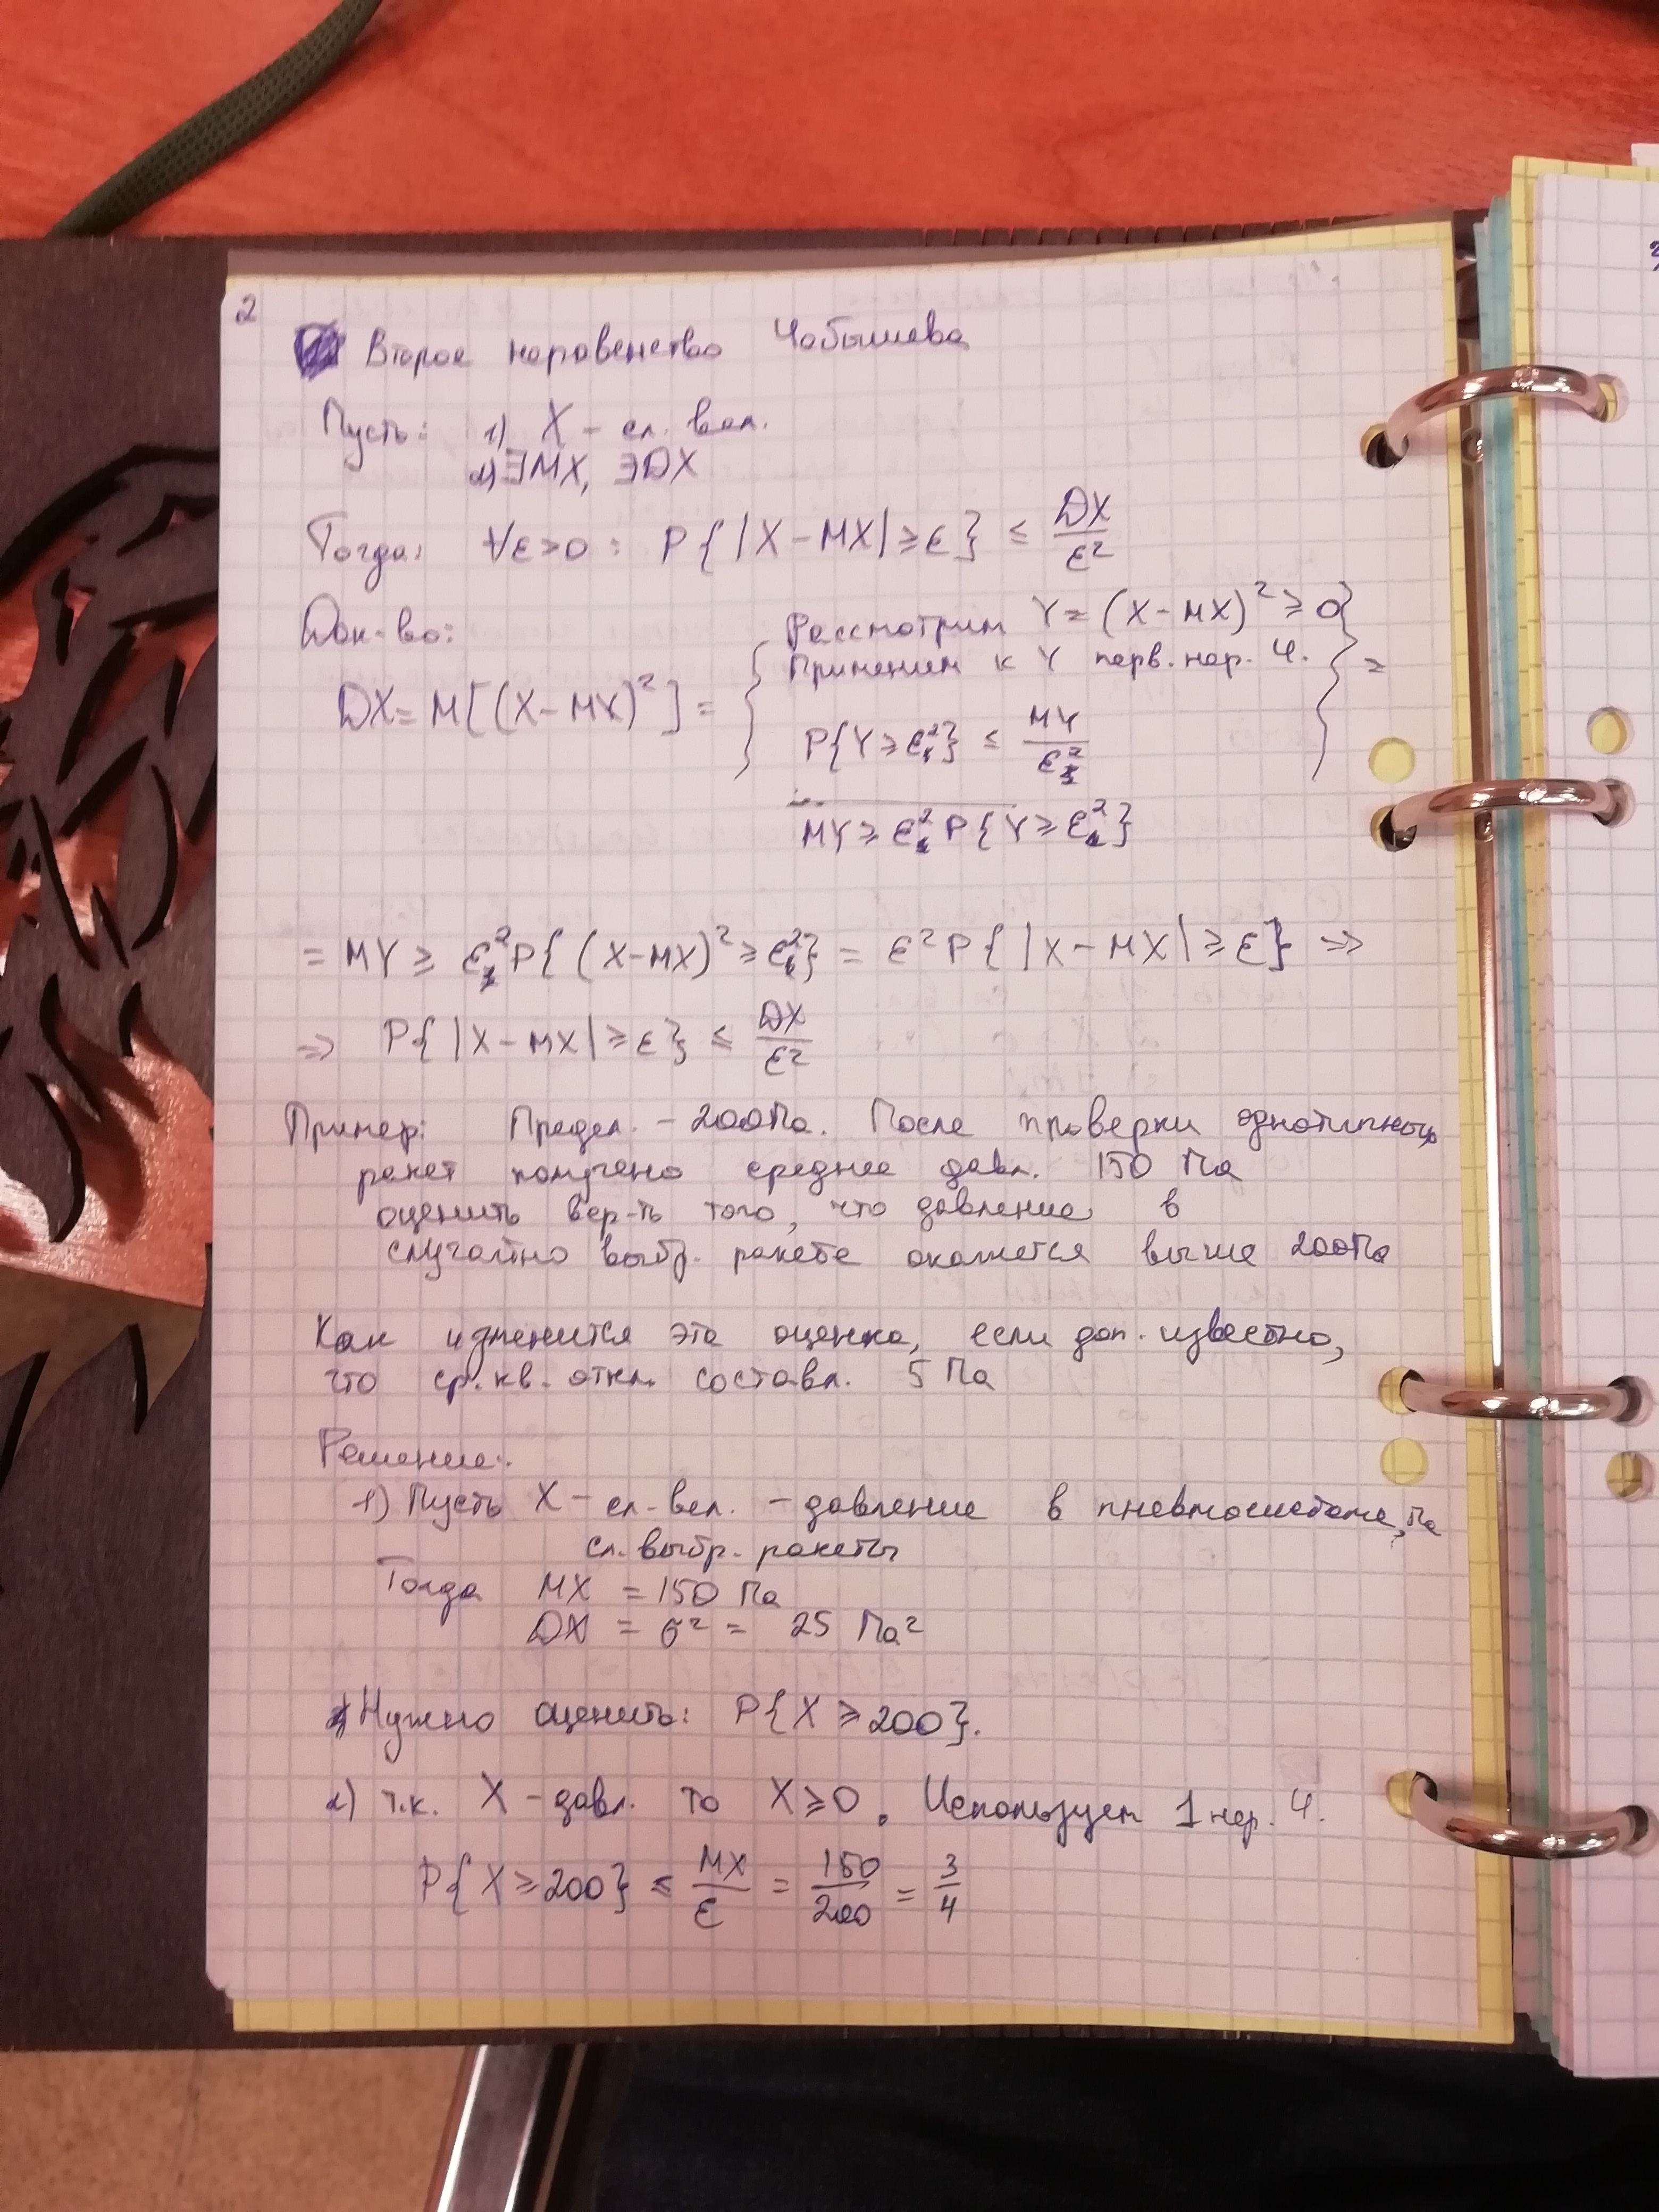 2
Второе неравенство Чебышева
Пусть: 1) X – сл. вел.
2) ∃MX, ∃DX
Тогда: ∀ε>0 : P{|X – MX| ≥ ε} ≤ DX/ε²
Док-во:
DX = M[(X – MX)²] =
Рассмотрим Y = (X – MX)² ≥ 0
Применим к Y перв. нер. Ч.
=
P{Y ≥ ε²} ≤ MY/ε²
MY ≥ ε² P{Y ≥ ε²}
= MY ≥ ε² P{(X – MX)² ≥ ε²} = ε² P{|X – MX| ≥ ε} ⇒
⇒ P{|X – MX| ≥ ε} ≤ DX/ε²
Пример: Предел. – 200 Па. После проверки однотипных
ракет получено среднее давл. 150 Па
оценить вер-ть того, что давление в
случайно выбр. ракете окажется выше 200 Па
Как изменится эта оценка, если доп. известно,
что ср. кв. откл. составл. 5 Па
Решение:
1) Пусть X – сл. вел. – давление в пневмосистеме, Па
сл. выбр. ракеты
Тогда MX = 150 Па
DX = σ² = 25 Па²
Нужно оценить: P{X ≥ 200}.
2) т.к. X – давл. то X ≥ 0. Использует 1 нер. Ч.
P{X ≥ 200} ≤ MX/ε = 150/200 = 3/4